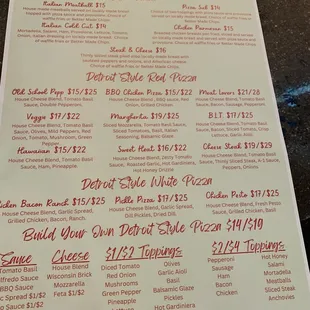 Italian Meatball $15
House made meatballs served on toasty bread
topped with pizza sauce and provolone. Choice of
waffle fries or Better Made Chips
Italian Cold Cut $14
Mortadella, Salami, Ham, Provolone, Lettuce, Tomato,
Onion, Italian Dressing on toasty bread. Choice of waffle
fries or Better Made Chips
Pizza Sub $14
Chicken Parmesan $15
Steak & Cheese $16
Choice of waffle fries or Better Made Chips
Detroit Style Red Pizza
Old School Pepp $15/$25
House Cheese Blend, Tomato Basil
Sauce, Double Pepperoni.
BBQ Chicken Pizza $15/$22
House Cheese Blend, BBQ sauce, Red
Onion, Grilled Chicken
Meat Lovers $21/28
House Cheese Blend, Tomato Basil
Sauce, Bacon, Sausage, Pepperoni,
Veggie $17/$22
House Cheese Blend, Tomato Basil
Sauce, Olives, Mild Peppers, Red
Onion, Tomato, Mushroom, Green
Pepper
Margherita $19/$25
Sliced Mozzarella, Tomato Basil Sauce,
Sliced Tomatoes, Basil, Italian
Seasoning, Balsamic Glaze
B.L.T. $17/$25
House Cheese Blend, Tomato Basil
Sauce, Bacon, Sliced Tomato, Crisp
Lettuce, Garlic Aioli.
Hawaiian $15/$22
House Cheese Blend, Tomato Basil
Sauce, Ham, Pineapple
Sweet Heat $16/$22
House Cheese Blend, Zesty Tomato
Sauce, Roasted Garlic, Hot Gardiniera,
Hot Honey Drizzle
Cheese Steak $19/$29
House Cheese Blend, Tomato Basil
Sauce, Thinly Sliced Steak,
Peppers, Onions,
Detroit Style White Pizza
Chicken Bacon Ranch $15/$25
House Cheese Blend, Garlic Spread,
Grilled Chicken, Bacon, Ranch.
Pickle Pizza $17/$25
House Cheese Blend, Garlic Spread,
Dill Pickles, Dried Dill.
Chicken Pesto $17/$25
House Cheese Blend, Fresh Pesto
Sauce, Grilled Chicken, Basil
Build Your Own Detroit Style Pizza $14/$19
Sauce
Tomato Basil
Alfredo Sauce
BBQ Sauce
Sauce $1/$2
Sauce $1/$2
Cheese
House Blend
Wisconsin Brick
Mozzarella
Feta $1/$2
$1/$2 Toppings
Diced Tomato
Red Onion
Mushrooms
Green Pepper
Pineapple
Olives
Garlic Aioli
Basil
Balsamic Glaze
Pickles
Hot Gardiniera
$2/$4 Toppings
Pepperoni
Sausage
Ham
Bacon
Chicken
Hot Honey
Salami
Mortadella
Meatballs
Sliced Steak
Anchovies